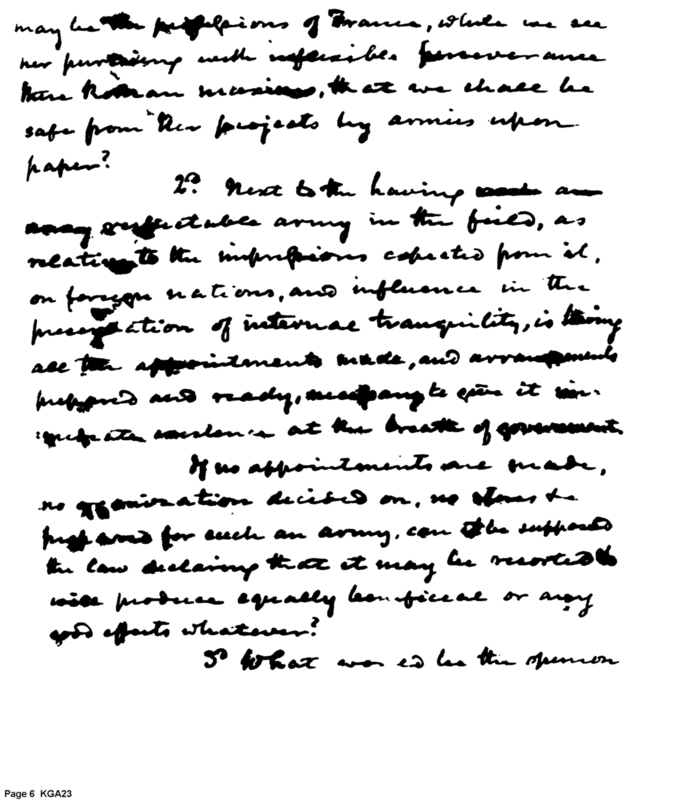 may be the professions of France, while we see
her pursuing with inflexible perseverance
those Roman maxims, that we shall be
safe from her projects by armies upon
paper?
2d. Next to the having an
respectable army in the field, as
relative to the impressions expected from it,
on foreign nations, and influence in the
preservation of internal tranquility, is having
all the appointments made, and arrangements
prepared and ready, necessary to give it im-
mediate existence at the breath of government.
If no appointments are made,
no organization decided on, no stores be
prepared for such an army, can it be supposed
the law declaring that it may be resorted to
will produce equally beneficial or any
good effects whatever?
3d What would be the opinion
Page 6 KGA23